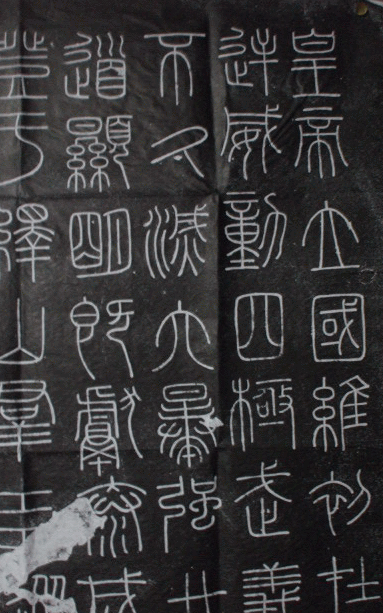 皇帝立國維初在
逆威動四極武義
不久滅六暴強廿
道顯明既獻泰成
登于繹山群臣